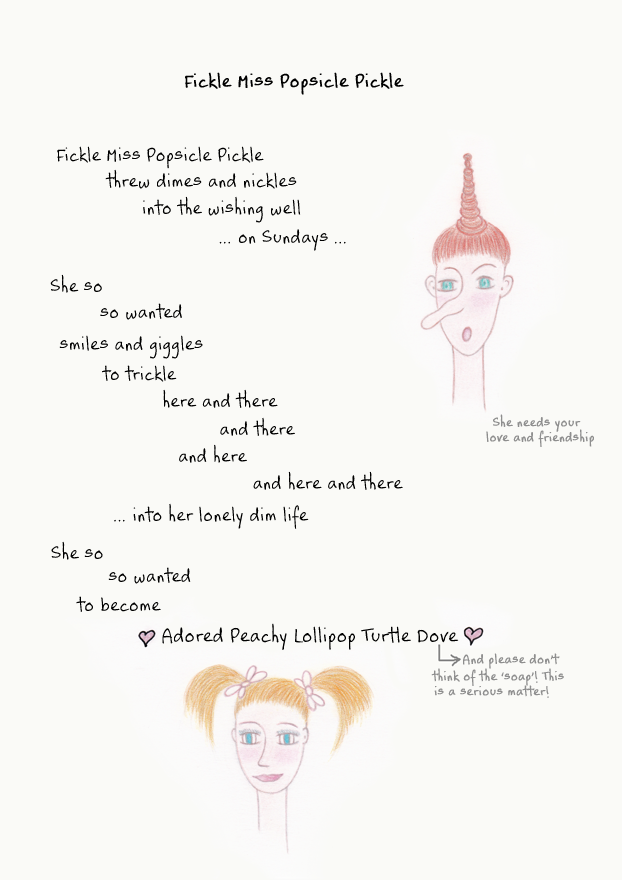 Fickle Miss Popsicle Pickle
Fickle Miss Popsicle Pickle
threw dimes and nickles
into the wishing well
... on Sundays ...
She so
so wanted
smiles and giggles
to trickle
here and there
and there
and here
and here and there
... into her lonely dim life
She so
so wanted
to become
Adored Peachy Lollipop Turtle Dove
She needs your
love and friendship
And please don't
think of the 'soap'! This
is a serious matter!